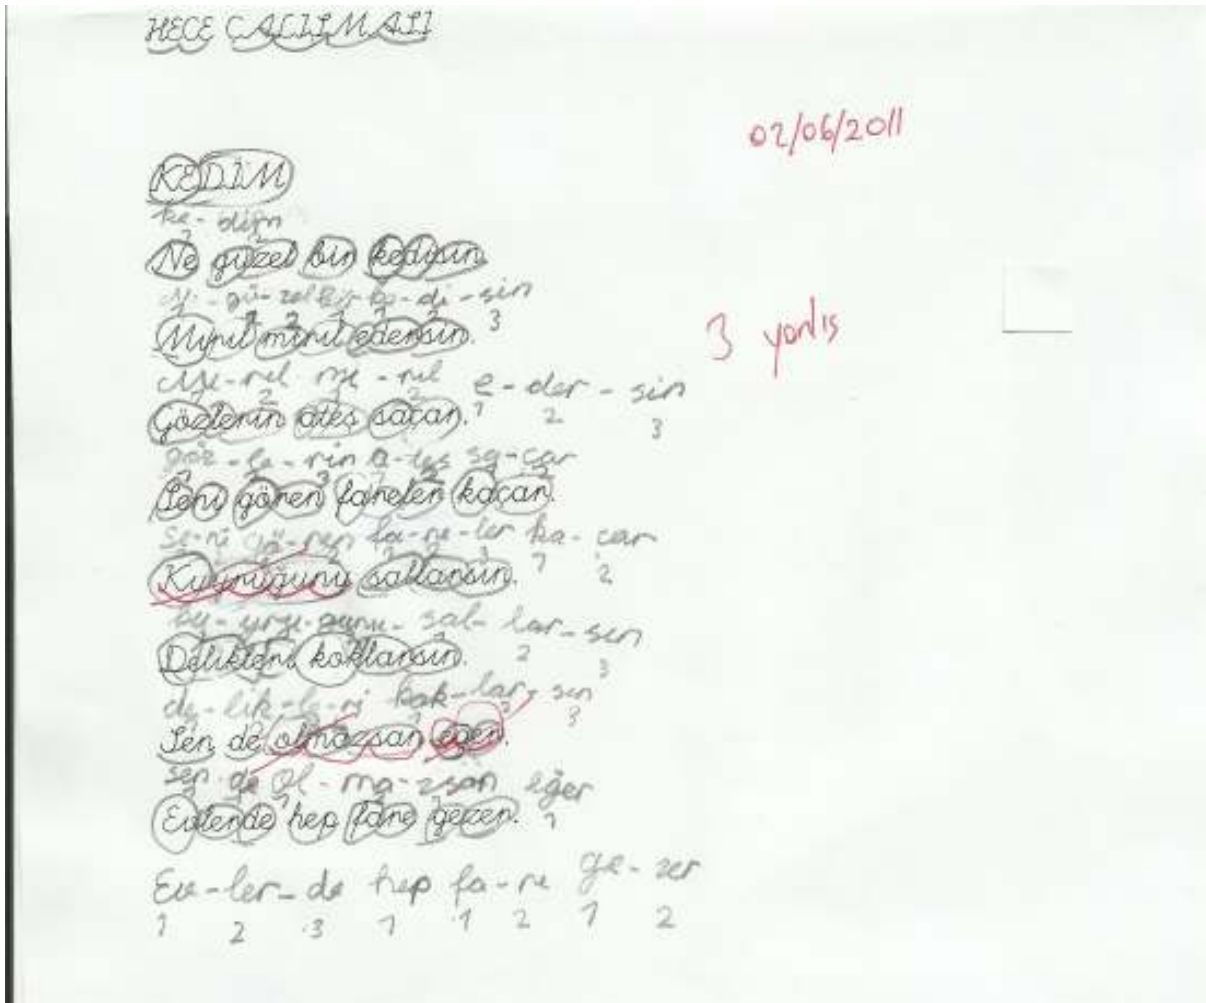 HECE ÇALIŞMASI
02/06/2011
KEDİM
ke-dim
1 2
Ne güzel bir kedisin.
gü-zel bir ke-di-sin
1 2 1 1 2 3
Mırıl mırıl edersin.
3 yanlış
Mı-rıl mı-rıl e-der-sin
1 2 1 2 1 2 3
Gözlerin ateş saçar.
göz-le-rin a-teş sa-çar
Seni gören fareler kaçar.
se-ni gö-ren fa-re-ler ka-çar
1 2 3 1 2
Kuyruğunu sallarsın.
sal-lar-sın
2 3
Delikleri koklarsın.
de-lik-le-ri kok-lar-sın
3
Sen de olmazsan eğer.
sen de ol-ma-zsan eğer
1
Evlerde hep fare gezer.
Ev-ler-de hep fa-re ge-zer
1 2 3 1 1 2 1 2